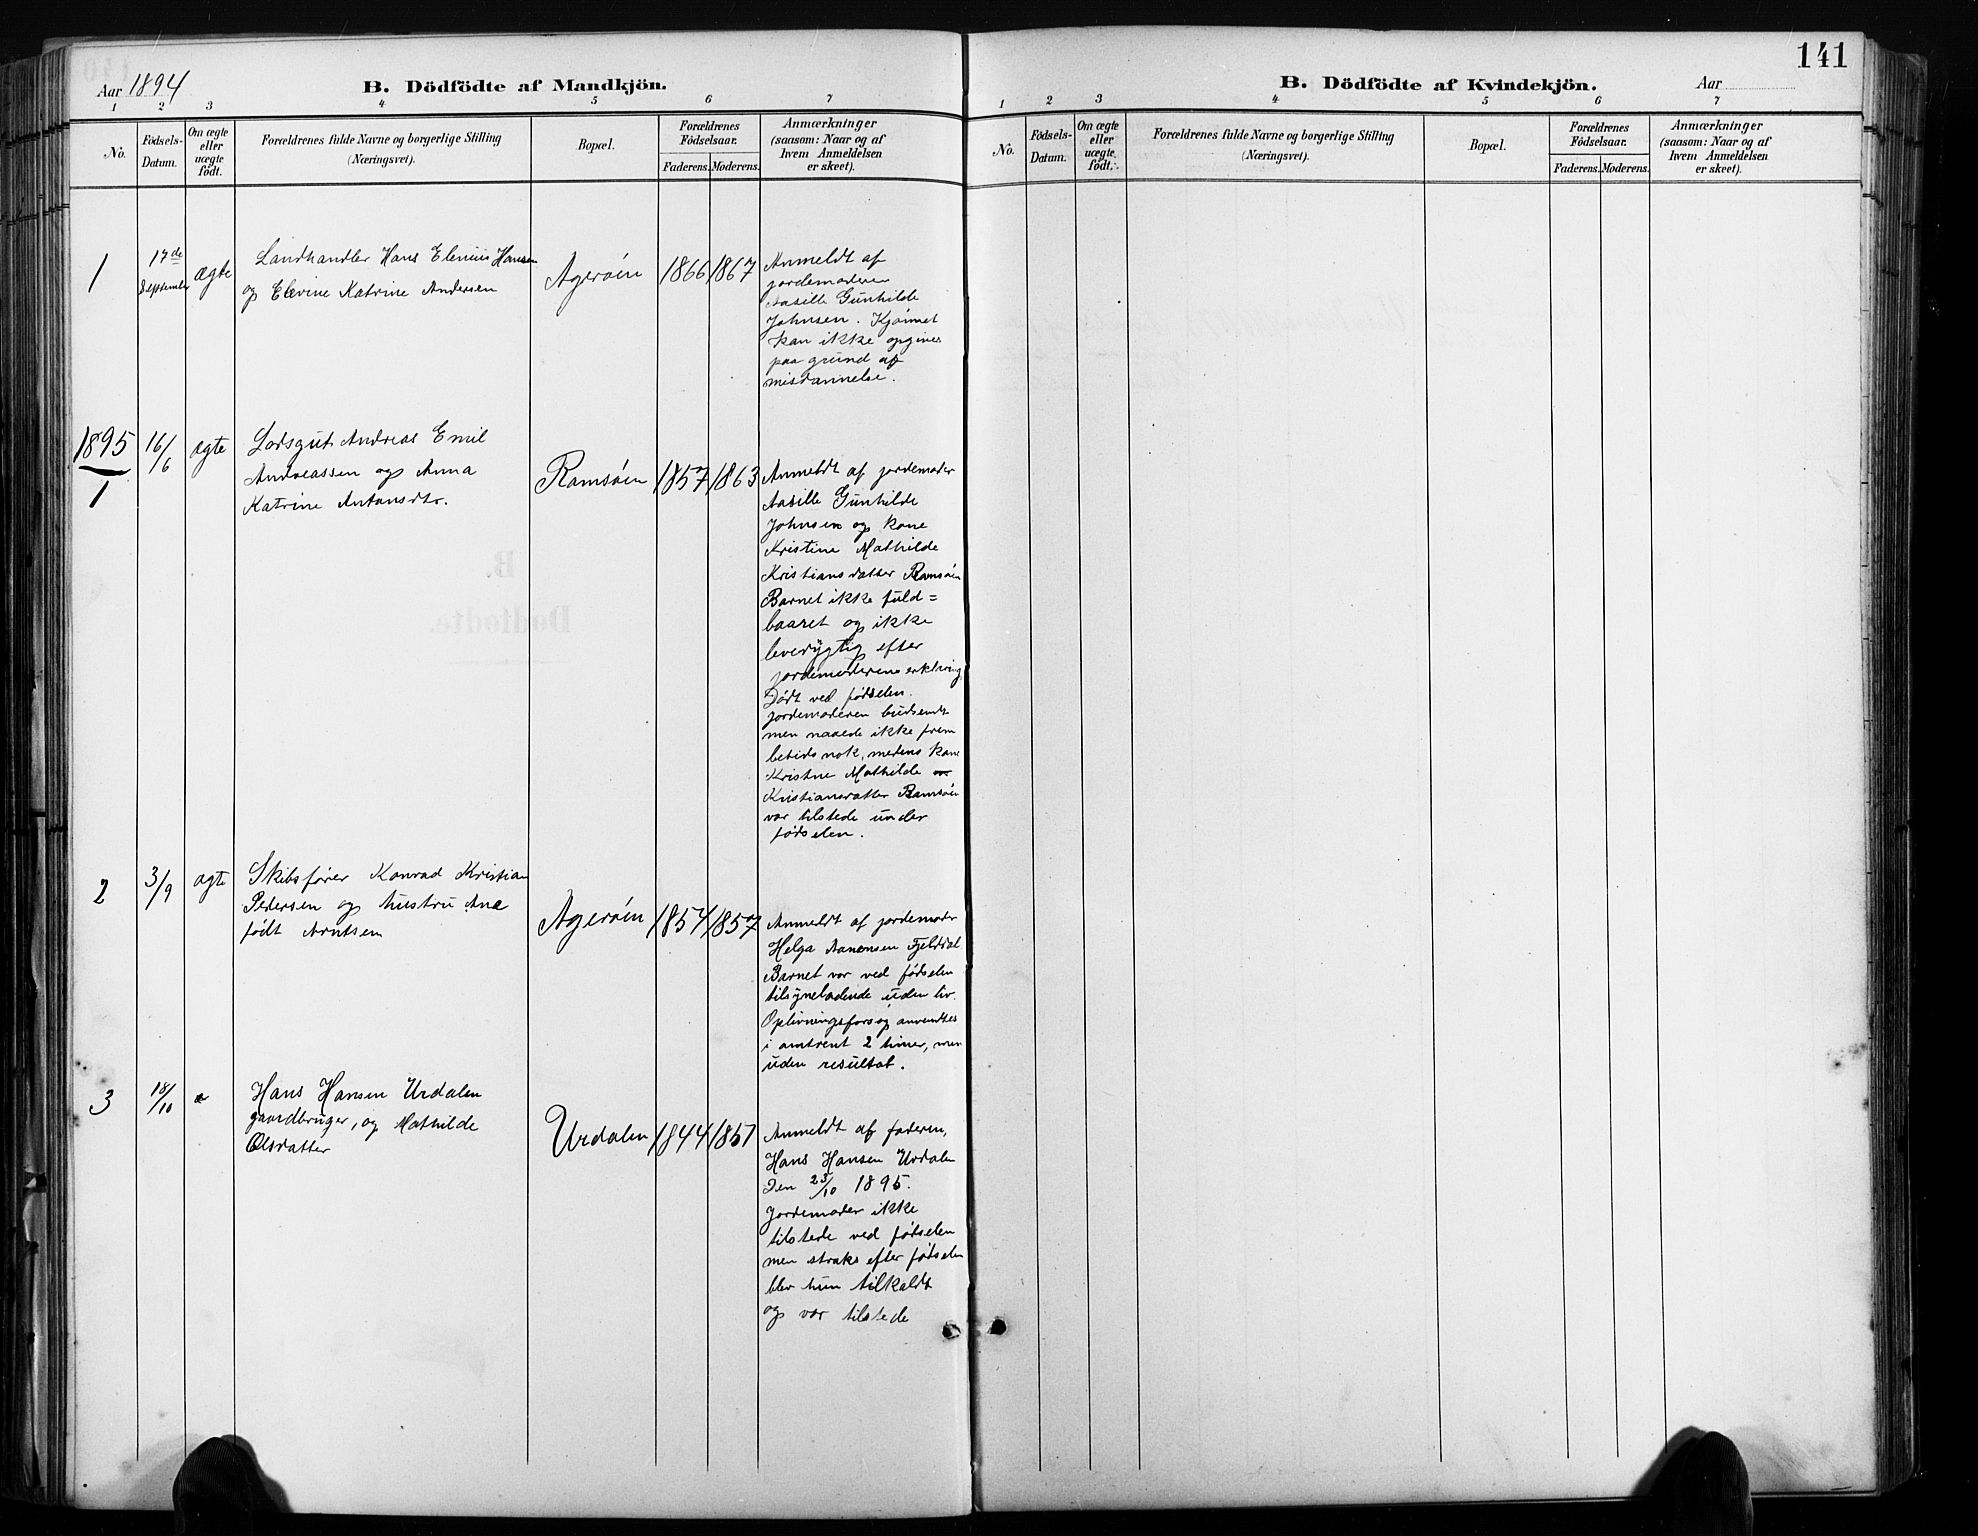 Aar 1894
B. Dödfödte af Mandkjön.
1 2 3 4 5 6 7
No.
Födsels-
Datum.
Om ægte
eller
uægte
födt.
Forældrenes fulde Navne og borgerlige Stilling
(Næringsvei).
Bopæl.
Forældrenes
Födselsaar.
Faderens. Moderens.
Anmærkninger
(saasom: Naar og af
hvem Anmeldelsen
er skeet).
1
17de
September
ægte
Landhandler Hans Elenius Hansen
og Elevine Katrine Andersen
Agerøen
1866
1867
Anmeldt af
jordemoderen
Aasille Gunhilde
Johnsen. Kjønnet
kan ikke opgives
paa grund af
misdannelse.
1895
1
16/6
ægte
Lodsgut Andreas Emil
Andreassen og Anna
Katrine Antonsdtr.
Ramsøen
1857
1863
Anmeldt af jordemoder
Aasille Gunhilde
Johnsen og kone
Kristine Mathilde
Kristiansdatter Ramsøen
Barnet ikke fuld=
baaret og ikke
levedygtig efter
jordemoderens erklæring
Dødt ved fødselen.
Jordemoderen budsendt
men naaede ikke frem
betids nok, medens kone
Kristine Mathilde
Kristiansdatter Ramsøen
var tilstede under
fødselen.
2
3/9
ægte
Skibsfører Konrad Kristian
Pedersen og hustru Ane
født Arntsen
Agerøen
1854
1857
Anmeldt af jordemoder
Helga Aanensen Fjeldal
Barnet var ved fødselen
tilsyneladende uden liv.
Oplivningsforsøg anvendtes
i omtrent 2 timer, men
uden resultat.
3
18/10
Hans Hansen Urdalen
gaardbruger, og Mathilde
Olsdatter
Urdalen
1844
1851
Anmeldt af faderen,
Hans Hansen Urdalen
den 23/10 1895.
Jordemoder ikke
tilstede ved fødselen
men straks efter fødselen
blev hun tilkaldt
og var tilstede
141
B. Dödfödte af Kvindekjön.
Aar
1 2 3 4 5 6 7
No.
Födsels-
Datum.
Om ægte
eller
uægte
födt.
Forældrenes fulde Navne og borgerlige Stilling
(Næringsvei).
Bopæl.
Forældrenes
Födselsaar.
Faderens. Moderens.
Anmærkninger
(saasom: Naar og af
hvem Anmeldelsen
er skeet).